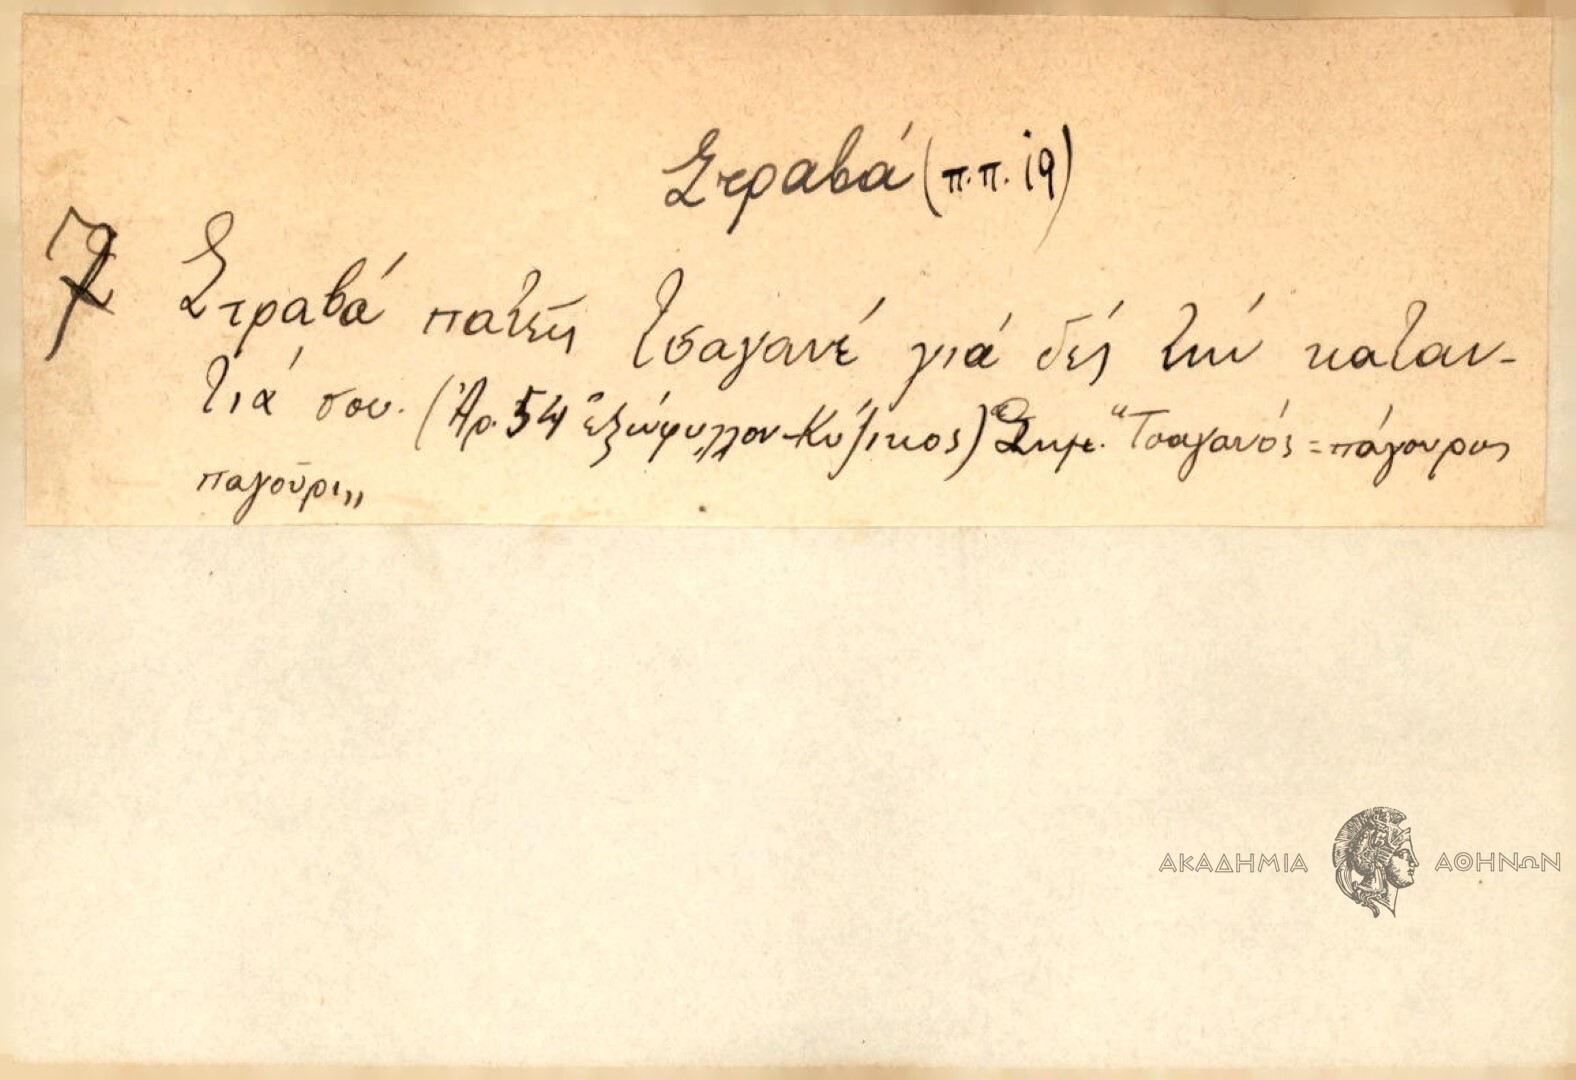 Στραβά (π.π. 19)
7 Στραβά πατεῖς τσαγανέ γιά δές τήν καταν-
τιά σου. (Ἀρ. 54 ἐξώφυλλον-Κύζικος) Σημ. "Τσαγανός = πάγουρος
παγοῦρι„
ΑΚΑΔΗΜΙΑ ΑΘΗΝΩΝ